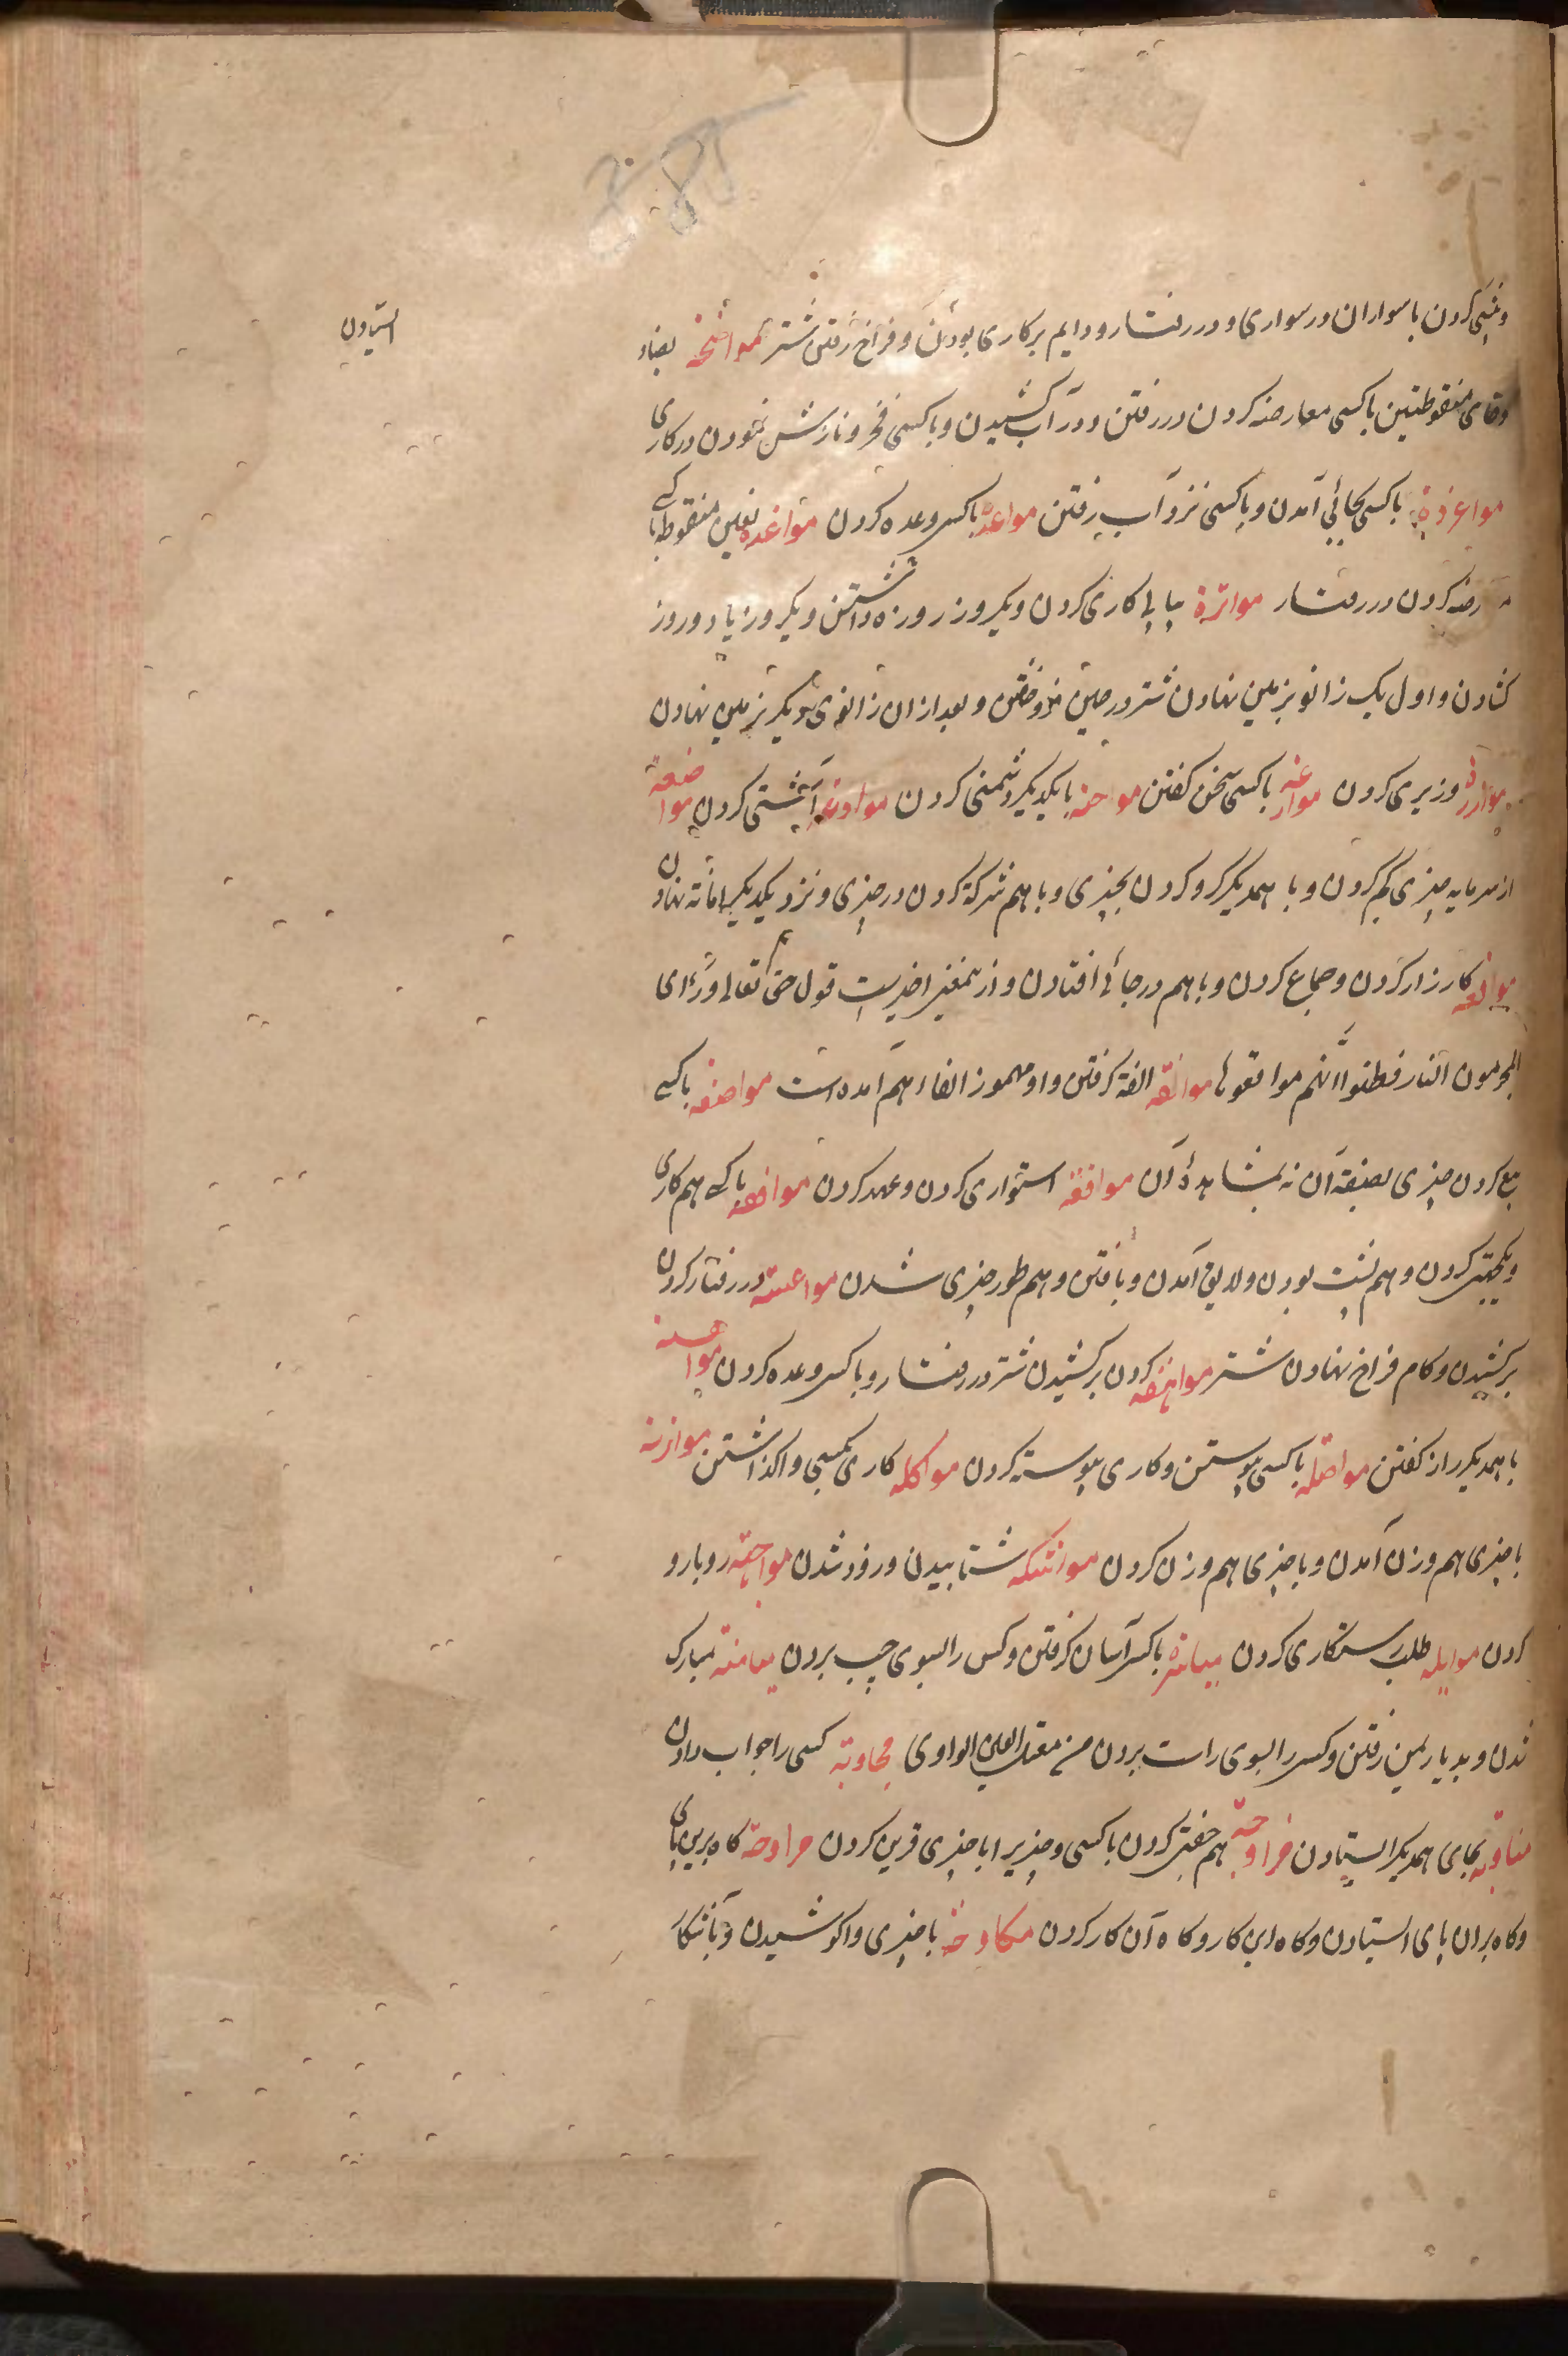 کردن با سواران در سواری و در رفتار و دایم بر کاری بودن و فراخ رفتن شتر مواضخه بضاد
وخای منقوطتین با کسی معارضه کردن در رفتن و در آب کشیدن و با کسی فخر و نازش نمودن در کاری
با کسی بجائی آمدن و با کسی نزد آب رفتن مواعده با کسی وعده کردن مواغده بغین منقوطه با کسی
معارضه کردن در رفتار مواترة پیاپی کاری کردن و یکروز روزه داشتن و یکروز یا دو روز
گشادن و اول یک زانو بزمین نهادن شتر در حین فرو خفتن و بعد از ان زانوی دیگر بزمین نهادن
موازرة وزیری کردن با کسی سخن گفتن مواحنه با یکدیگر دشمنی کردن موادعه آشتی کردن مواضعة
از سرمایه چیزی کم کردن و با همدیگر گرو کردن بچیزی و با هم شرکة کردن در چیزی و نزد یکدیگر امانة نهادن
مواقعه کارزار کردن و جماع کردن و با هم در جائی افتادن و از ین معنی اخیرست قول حق تعالی ورءای
المجرمون النار فظنوا انهم مواقعوها موالفة الفة گرفتن و او مهموز الفاء هم آمده است مواصفه با کسی
بیع کردن چیزی بصفة آن نه بمشاهدهٔ آن مواثقة استواری کردن و عهد کردن موافقه با کسی هم کاری
و یکجهتی کردن و هم پشت بودن و لایق آمدن و یافتن و هم طور چیزی شدن در رفتار گردن
برکشیدن و گام فراخ نهادن شتر مواهقه گردن برکشیدن شتر در رفتار و با کسی وعده کردن
با همدیگر راز گفتن مواصله با کسی پیوستن و کاری پیوسته کردن مواکله کاری بکسی واگذاشتن موازنه
با چیزی هم وزن آمدن و با چیزی هم وزن کردن مواشکه شتابیدن و زود شدن مواجهة روبارو
کردن مواءله طلب رستگاری کردن میاسرة با کسی آسان گرفتن و کسی را بسوی چپ بردن میامنة مبارک
شدن و بدیار یمن رفتن و کسی را بسوی راست بردن من معتل العین الواوی مجاوبة کسی را جواب دادن
مناوبه بجای همدیگر ایستادن مزاوجة هم جفتی کردن با کسی و چیزیرا با چیزی قرین کردن مراوحة گاه برین پای
و گاه بران پای ایستادن و گاه این کار و گاه آن کار کردن مکاوحة با چیزی واکوشیدن و بآشکار
ایستادن